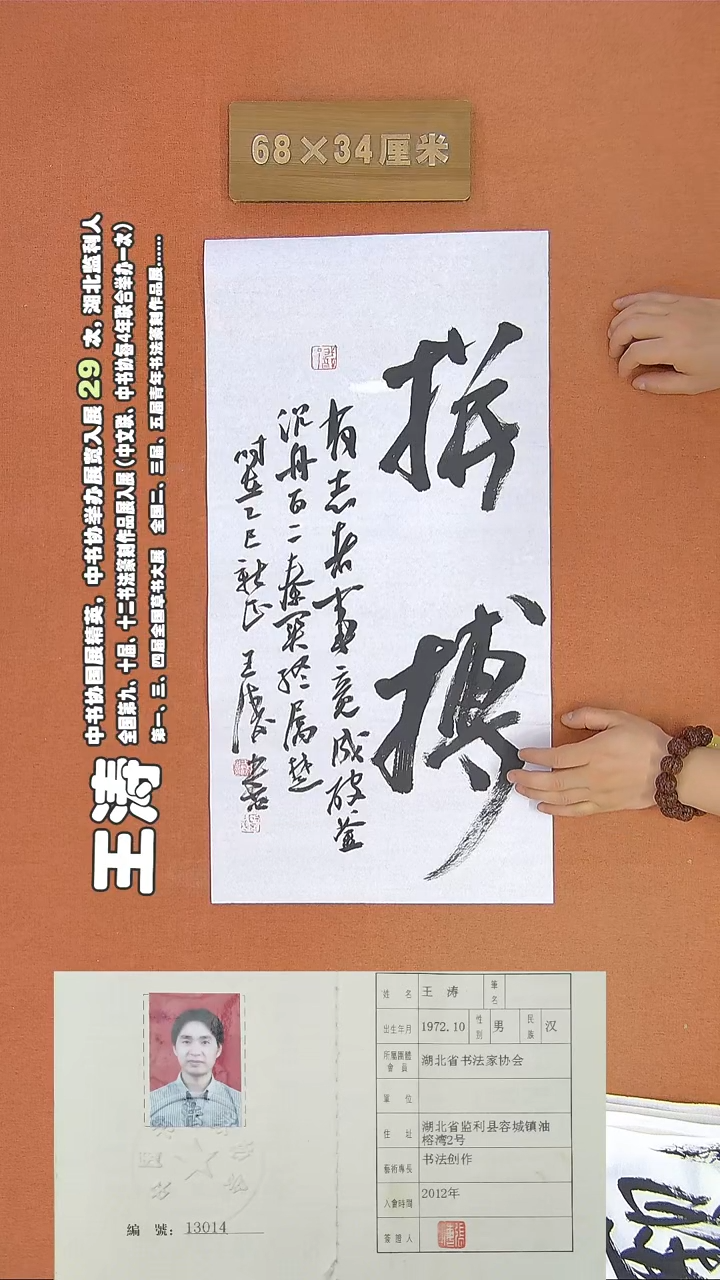 68×34厘米
拼
搏
有志者事竟成破釜
沉舟百二秦关终属楚
时在乙巳秋月 王涛书
王涛
中书协国展精英，中书协举办展赛入展 29 次，湖北监利人
全国第九、十届、十二书法篆刻作品展入展（中文联、中书协每4年联合举办一次）
第一、三、四届全国草书大展 全国二、三届、五届青年书法篆刻作品展......
編 號：13014
姓 名 王 涛 筆名
出生年月 1972.10 性別 男 民族 汉
所屬團體會員 湖北省书法家协会
單 位
住 址 湖北省监利县容城镇油
榕湾2号
藝術專長 书法创作
入會時間 2012年
簽證人